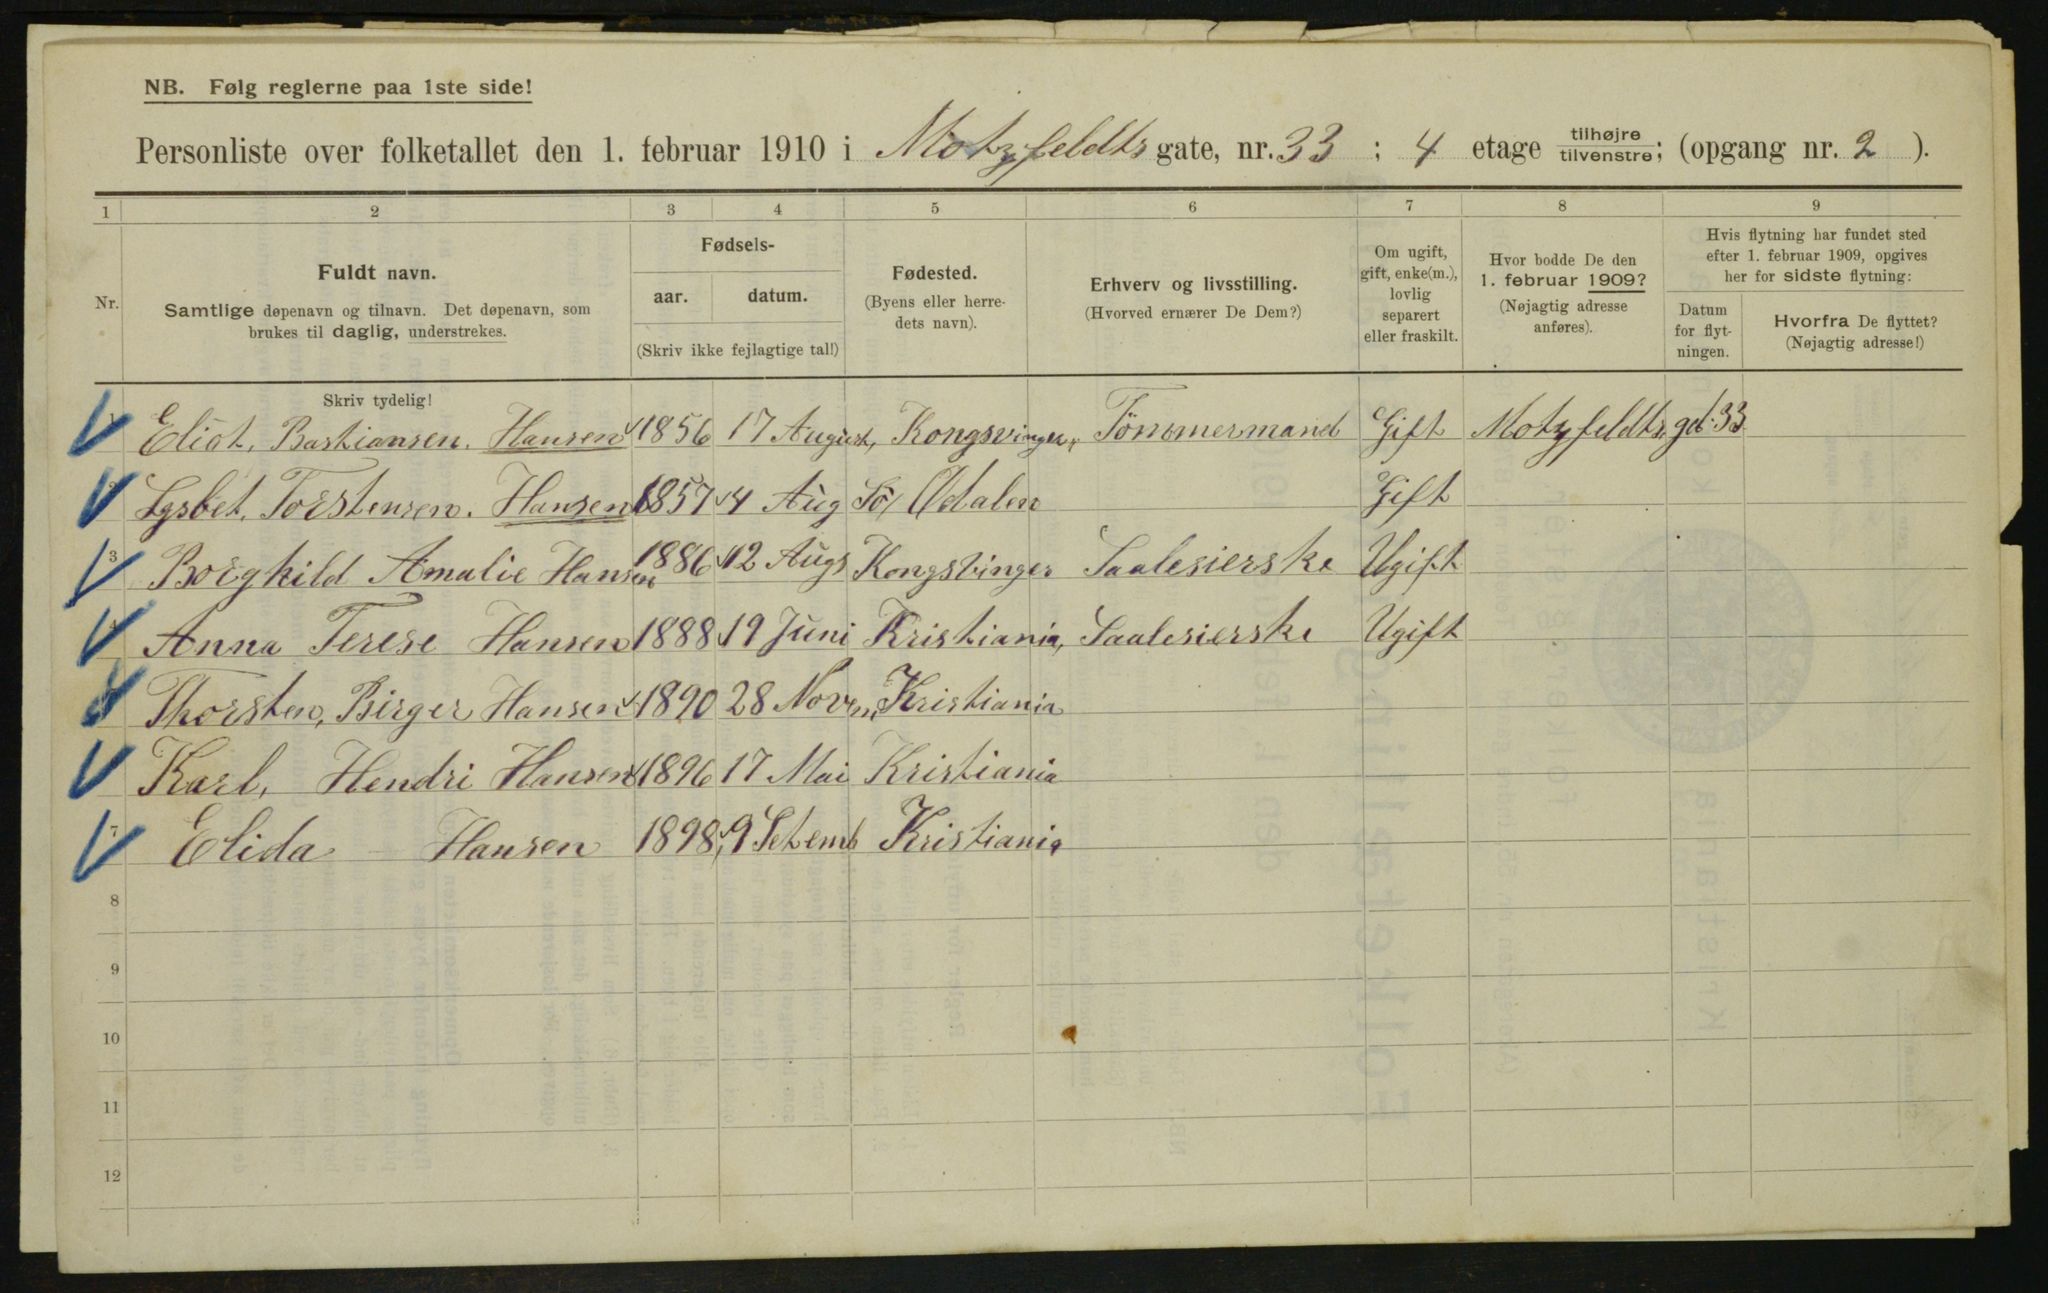 NB. Følg reglerne paa 1ste side!
Personliste over folketallet den 1. februar 1910 i Motzfeldts gate, nr. 33 ; 4 etage tilhøjre/tilvenstre; (opgang nr. 2 ).
1 2 3 4 5 6 7 8 9
Nr.
Fuldt navn.
Samtlige døpenavn og tilnavn. Det døpenavn, som
brukes til daglig, understrekes.
Fødsels-
aar. datum.
(Skriv ikke fejlagtige tal!)
Fødested.
(Byens eller herre-
dets navn).
Erhverv og livsstilling.
(Hvorved ernærer De Dem?)
Om ugift,
gift, enke(m.),
lovlig
separert
eller fraskilt.
Hvor bodde De den
1. februar 1909?
(Nøjagtig adresse
anføres).
Hvis flytning har fundet sted
efter 1. februar 1909, opgives
her for sidste flytning:
Datum
for flyt-
ningen.
Hvorfra De flyttet?
(Nøjagtig adresse!)
Skriv tydelig!
1 Eliat, Bastiansen. Hansen 1856 17 August, Kongsvinger, Tömmermand Gift Motzfeldts gd. 33
2 Lysbet, Torstensen. Hansen 1857 4 Aug Sö Odalen Gift
3 Borghild Amalie Hansen 1886 12 Augs Kongsvinger Saalesierske Ugift
4 Anna Terese Hansen 1888 19 Juni Kristiania, Saalesierske Ugift
Thorsten, Birger Hansen 1890 28 Novem Kristiania
Karl, Hendri Hansen 1896 17 Mai Kristiania
7 Elida Hansen 1898, 9 Setemb Kristiania
8
9
10
11
12